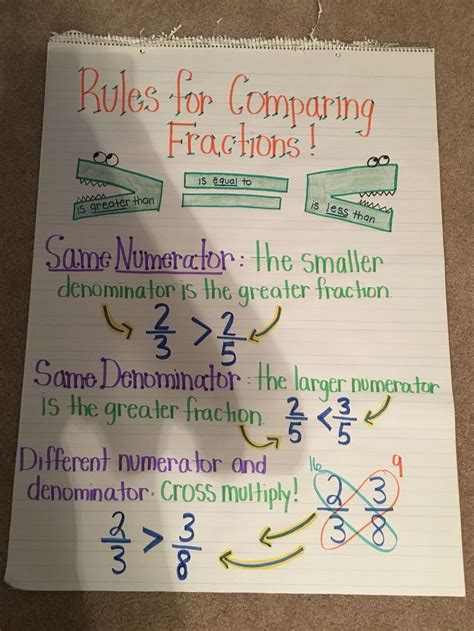 Rules for Comparing
Fractions!
is greater than
is equal to
is less than
Same Numerator: the smaller
denominator is the greater fraction.
2/3 > 2/5
Same Denominator: the larger numerator
is the greater fraction.
2/5 < 3/5
Different numerator and
denominator. Cross multiply!
16 9
2/3 3/8
2/3 > 3/8